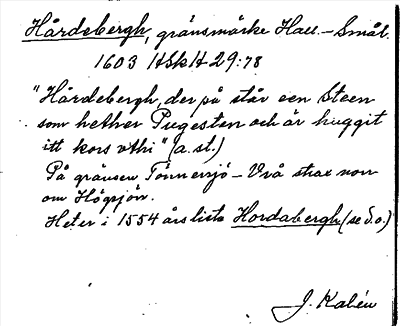 Hårdebergh, gränsmärke Hall.-Smål.
1603 HSkH 29:78
"Hårdebergh, der på står een Steen
som hether Pugesten och är huggit
itt kors vthi" (a.st.)
På gränsen Tönnersjö - Vrå strax norr
om Högsjön.
Heter i 1554 års lista Hordabergh (se d.o.)
J. Kalén